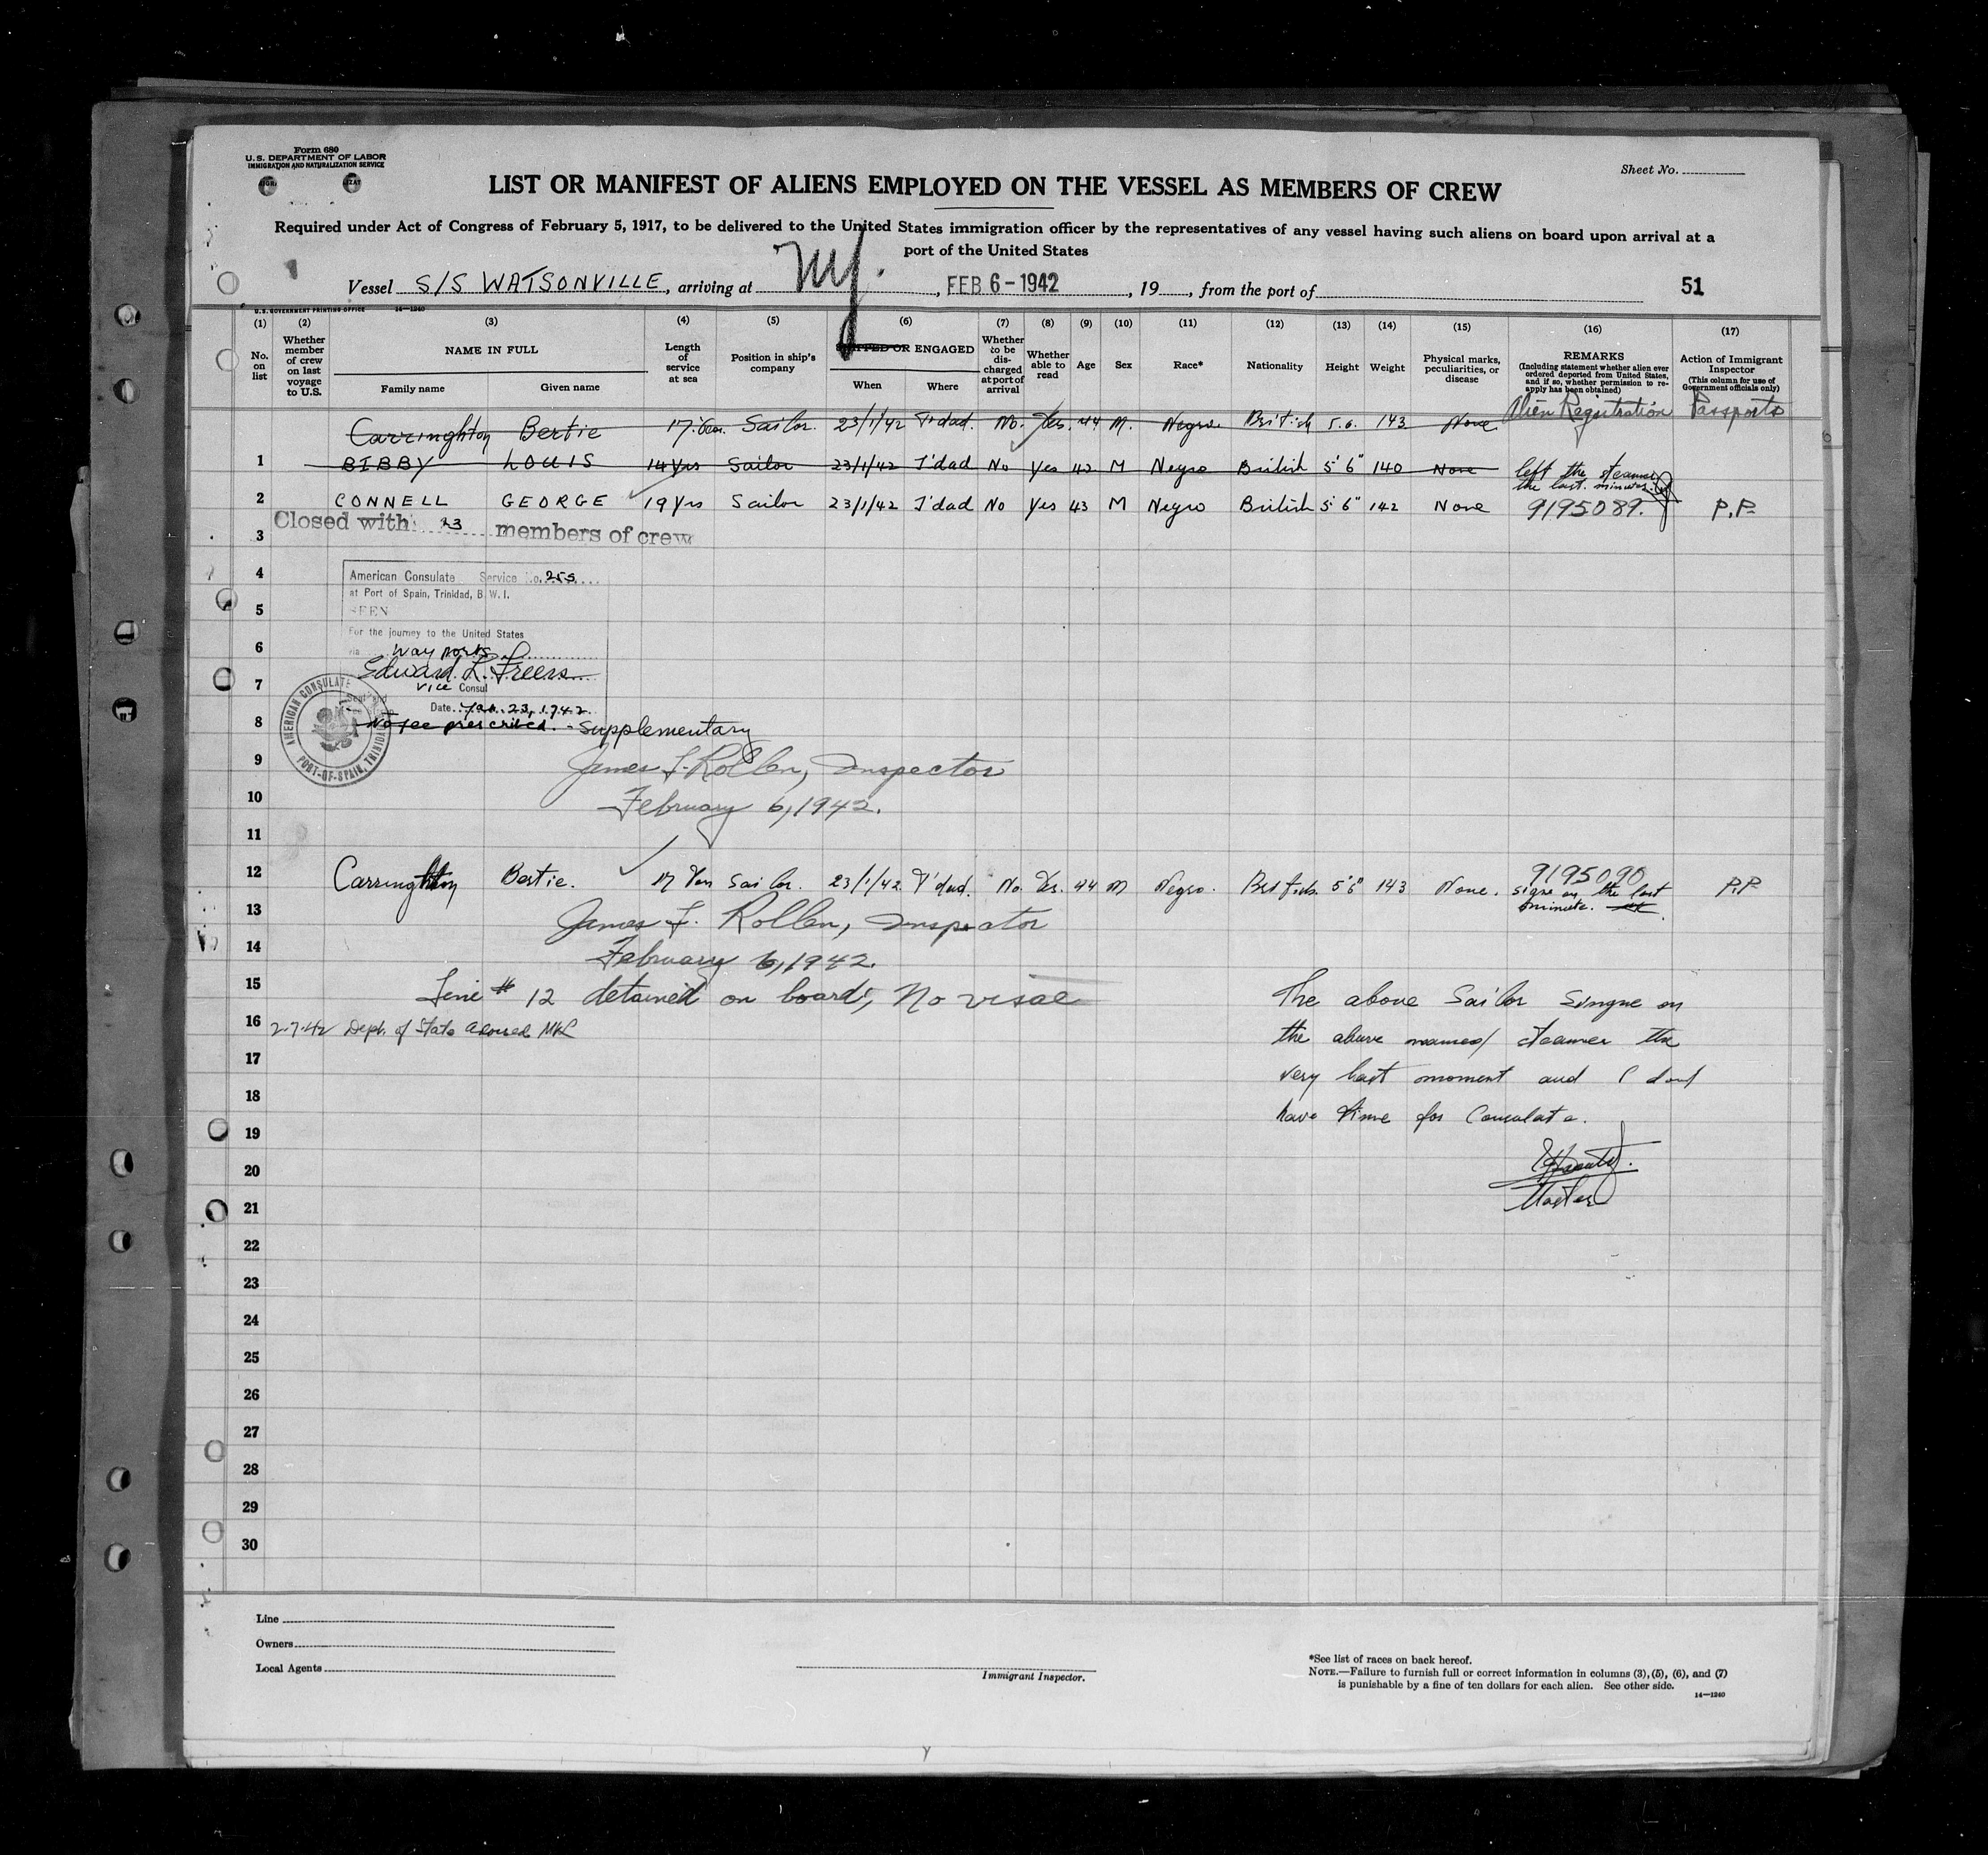 Form 680
U.S. DEPARTMENT OF LABOR
IMMIGRATION AND NATURALIZATION SERVICE
Sheet No.
LIST OR MANIFEST OF ALIENS EMPLOYED ON THE VESSEL AS MEMBERS OF CREW
Required under Act of Congress of February 5, 1917, to be delivered to the United States immigration officer by the representatives of any vessel having such aliens on board upon arrival at a
port of the United States
Vessel S/S WATSONVILLE, arriving at NY., FEB 6-1942, 19, from the port of 51
U.S. GOVERNMENT PRINTING OFFICE 14—1240
(1) (2) (3) (4) (5) (6) (7) (8) (9) (10) (11) (12) (13) (14) (15) (16) (17)
No. on list
Whether member of crew on last voyage to U.S.
NAME IN FULL
Family name Given name
Length of service at sea
Position in ship's company
SHIPPED OR ENGAGED
When Where
Whether to be discharged at port of arrival
Whether able to read
Age
Sex
Race*
Nationality
Height
Weight
Physical marks, peculiarities, or disease
REMARKS
(Including statement whether alien ever ordered deported from United States, and if so, whether permission to reapply has been obtained)
Action of Immigrant Inspector
(This column for use of Government officials only)
Alien Registration Passports
Carringhton Bertie 17 Sailor. 23/1/42 T'dad. No. Yes. 44 M. Negro British 5.6. 143 None
1 BIBBY LOUIS 14 yrs Sailor 23/1/42 T'dad No Yes 42 M Negro British 5' 6" 140 None left the steamer
the last minute.
2 CONNELL GEORGE 19 yrs Sailor 23/1/42 T'dad No Yes 43 M Negro British 5' 6" 142 None 9195089. P.P.
Closed with 23 members of crew
3
4
American Consulate Service No. 255
at Port of Spain, Trinidad, B.W.I.
5
SEEN
For the journey to the United States
6
via way ports
Edward L. Freers
7
Vice Consul
Date Jan. 23, 1942
8
No fee prescribed. - Supplementary
AMERICAN CONSULATE PORT-OF-SPAIN, TRINIDAD
9 James F. Rollen, Inspector
10 February 6, 1942.
11
12 Carringhton Bertie. 17 Sailor. 23/1/42 T'dad. No. Yes. 44 M Negro. British 5'6" 143 None. 9195090 P.P.
signe on the last
minute.
13 James F. Rollen, Inspector
14 February 6, 1942.
15 Line # 12 detained on board, No visae
The above Sailor Singne on
16 2-7-42 Dept. of State MKL
the above named steamer the
17
very last moment and I dont
18
have time for Consulate.
19
20
Master
21
22
23
24
25
26
27
28
29
30
Line
Owners
Local Agents
Immigrant Inspector.
*See list of races on back hereof.
NOTE.—Failure to furnish full or correct information in columns (3), (5), (6), and (7)
is punishable by a fine of ten dollars for each alien. See other side.
14—1240